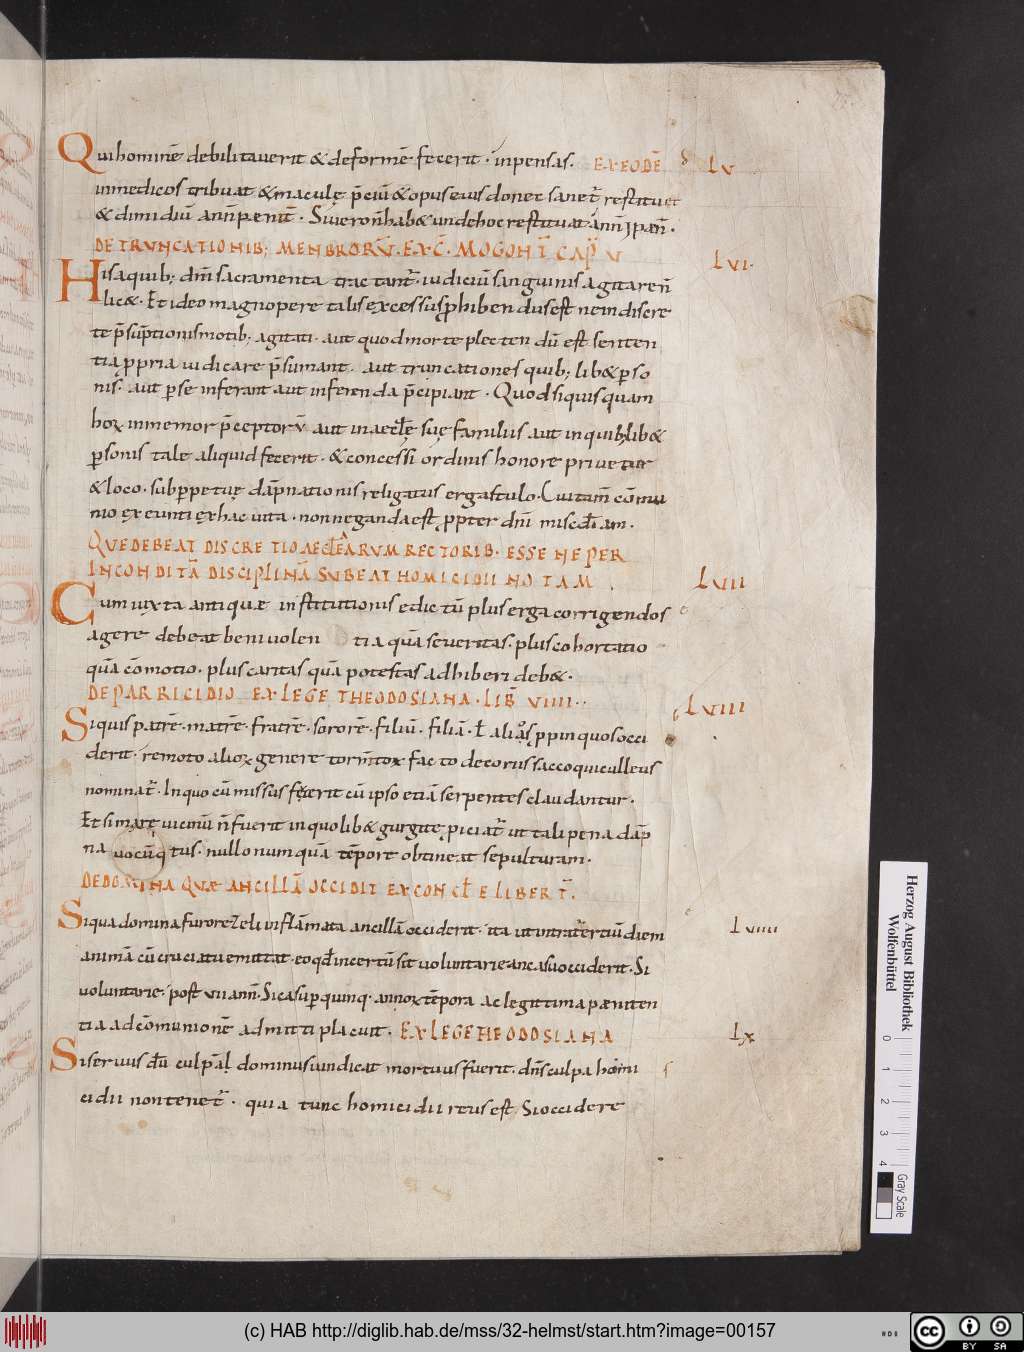 Qui hominē debilitaverit & deformē fecerit · inpensas. EX EODĒ LV
inmedicos tribuat & maculę p̄ciū & opus eius donec sanet̄ restituet
& dimidiū ann̄ pænit̄ · Si vero n̄ hab& unde hoc restituat
DE TRVNCATIONIB; MENBRORV̄ · EX C̄ · MOGONT̄ CAP̄ V LVI·
His aquib; dn̄i sacramenta tractant̄ · iudiciū sanguinis agitare n̄
lic& · Et ideo magnopere talis excessus p̄hibendus est ne indiscre
te p̄sūptionis motib; agitati · aut quod morte plectendū est senten
tia p̄pria iudicare p̄sumant · aut truncationes quib; lib& p̄so
nis · aut p̄ se inferant aut inferenda p̄cipiant · Quod si quisquam
hoꝝ inmemor p̄ceptorū aut in aecl̄e suę famulis aut in quib; lib&
p̄sonis tale aliquid fecerit · & concessi ordinis honore privetur
& loco · sub p̄petuę dāpnationis religatus ergastulo · Cui tam̄ cōmu
nio exeunti ex hac vita · non neganda est p̄pter dn̄i miscd̄iam ·
QUE DEBEAT DISCRETIO AECL̄EARVM RECTORIB· ESSE NE PER
INCONDITĀ DISCIPLINĀ SUBEAT HOMICIDII NOTAM · LVII
Cum iuxta antiquæ institutionis edictū plus erga corrigendos
agere debeat benivolen tia quā severitas · plus cohortatio
quā cōmotio · plus caritas quā potestas adhiberi deb& ·
DE PARRICIDIO EX LEGE THEODOSIANA · LIB̄ VIIII · LVIII
Si quis patrē · matrē · fratrē · sororē · filiū · filiā · ł aliǫs p̄pinquos occi
derit · remoto alioꝝ genere tormtoꝝ facto de coriis sacco qui culleus
nominat̄ · In quo cū missus fuerit cū ipso etiā serpentes claudantur ·
Et si mare vicinū n̄ fuerit in quolib& gurgite piciat̄ ut tali pena dāp
na vocūq tus · nullo num quā tēpore obtineat sepulturam ·
DE DOMINA QVÆ ANCILLĀ OCCIDIT EX CONCL̄ ELIBERT̄ ·
Si qua domina furore zeli inflāmata ancillā occiderit · ita ut intra tertiū diem LVIIII
animā cū cruciatu emittat · eo qd̄ incertū sit voluntarie an casu occiderit · Si
voluntarie · post VII ann̄ · Si casu p̄ quinq · annoꝝ tēpora ac legittima pæniten
tia ad cōmunionē admitti placuit · EX LEGE THEODOSIANA LX
Si servus dū culpal̄ dominus vindicat mortuus fuerit · dn̄s culpa homi
cidii non tenet̄ · quia tunc homicidii reus est Si occidere
Herzog August Bibliothek
Wolfenbüttel
0 1 2 3 4
Gray Scale
(c) HAB http://diglib.hab.de/mss/32-helmst/start.htm?image=00157
cc BY SA